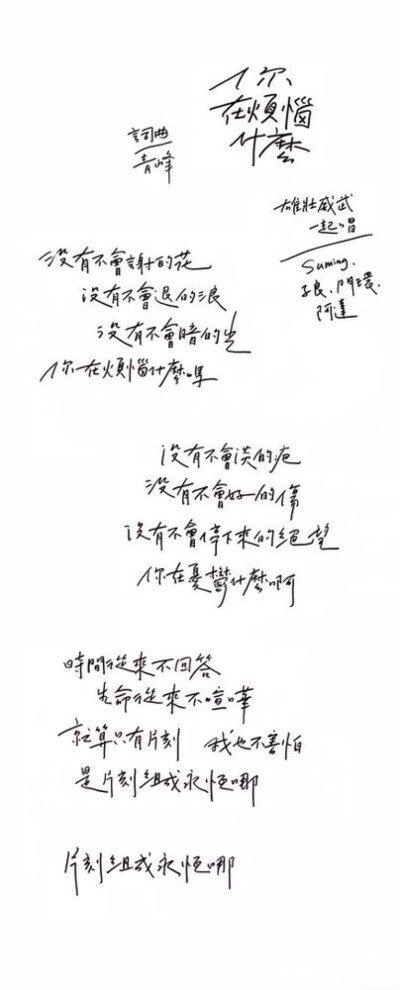 你
在煩惱
什麼
詞曲
青峰
雄壯威武
一起唱
Suming.
子良、門環.
阿達
沒有不會謝的花
沒有不會退的浪
沒有不會暗的光
你在煩惱什麼嘿
沒有不會淡的疤
沒有不會好的傷
沒有不會停下來的絕望
你在憂鬱什麼啊
時間從來不回答
生命從來不喧嘩
就算只有片刻 我也不害怕
是片刻組成永恆哪
片刻組成永恆哪